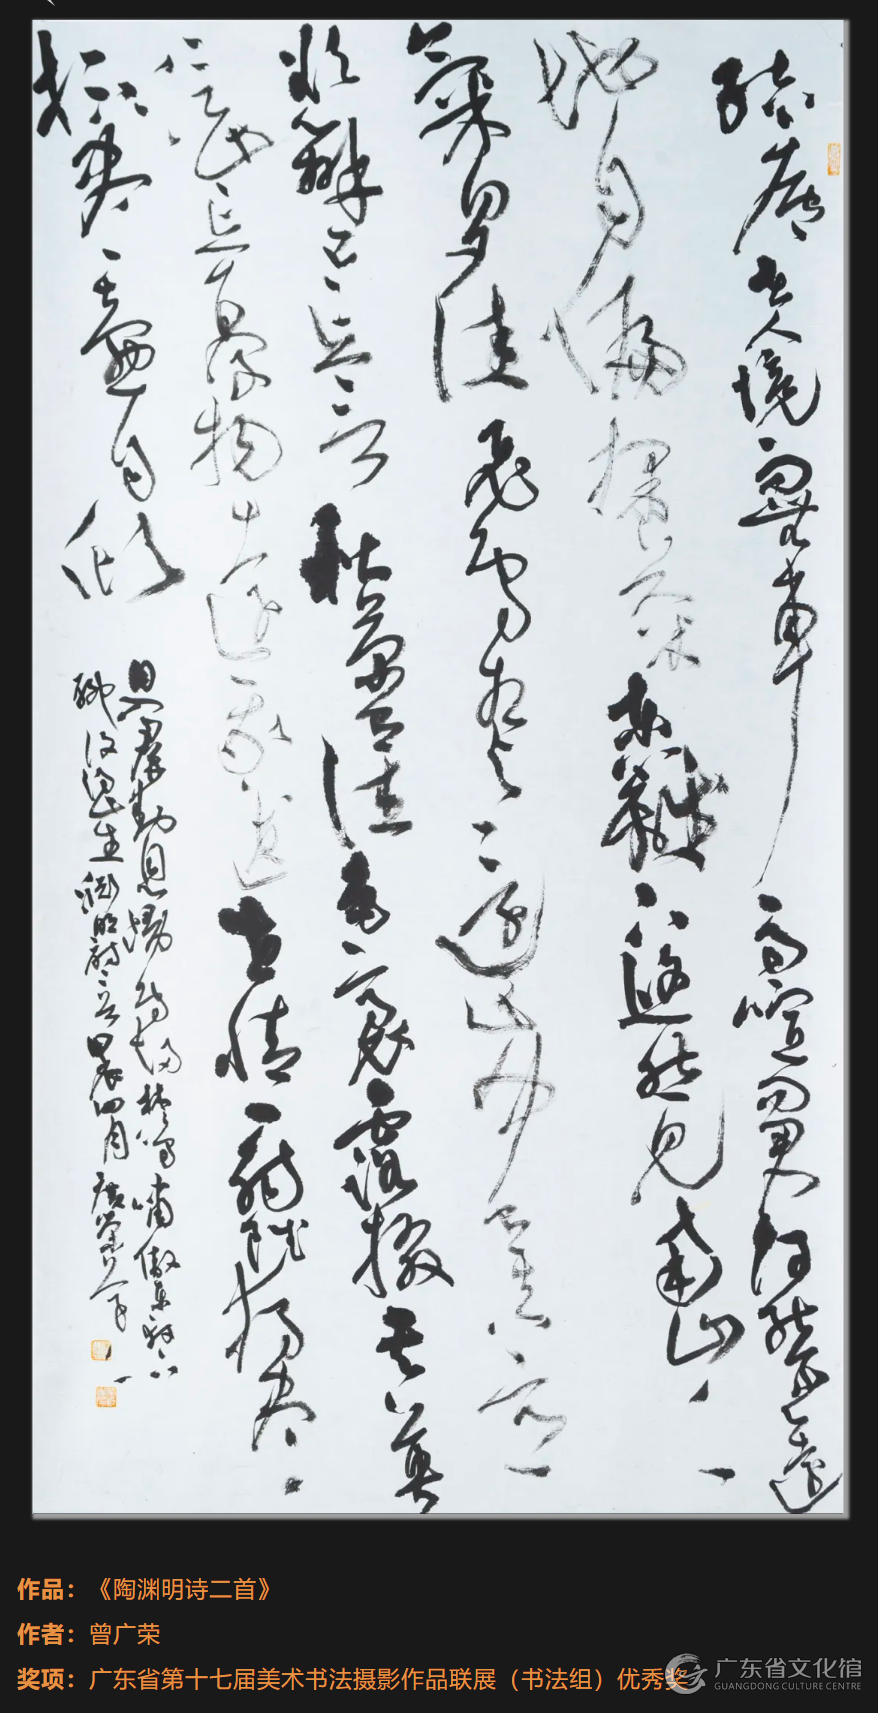 结廬在人境而無車馬喧問君何能爾心遠
地自偏採菊東籬下悠然見南山山
氣日夕佳飛鳥相與還此中有真意
欲辨已忘言秋菊有佳色裛露掇其英
汎此忘憂物遠我遺世情一觴雖獨盡
杯盡壺自傾
日入群動息歸鳥趨林鳴嘯傲東軒下
聊復得此生淵明詩二首甲辰四月廣榮
作品：《陶渊明诗二首》
作者：曾广荣
奖项：广东省第十七届美术书法摄影作品联展（书法组）优秀奖
广东省文化馆
GUANGDONG CULTURE CENTRE